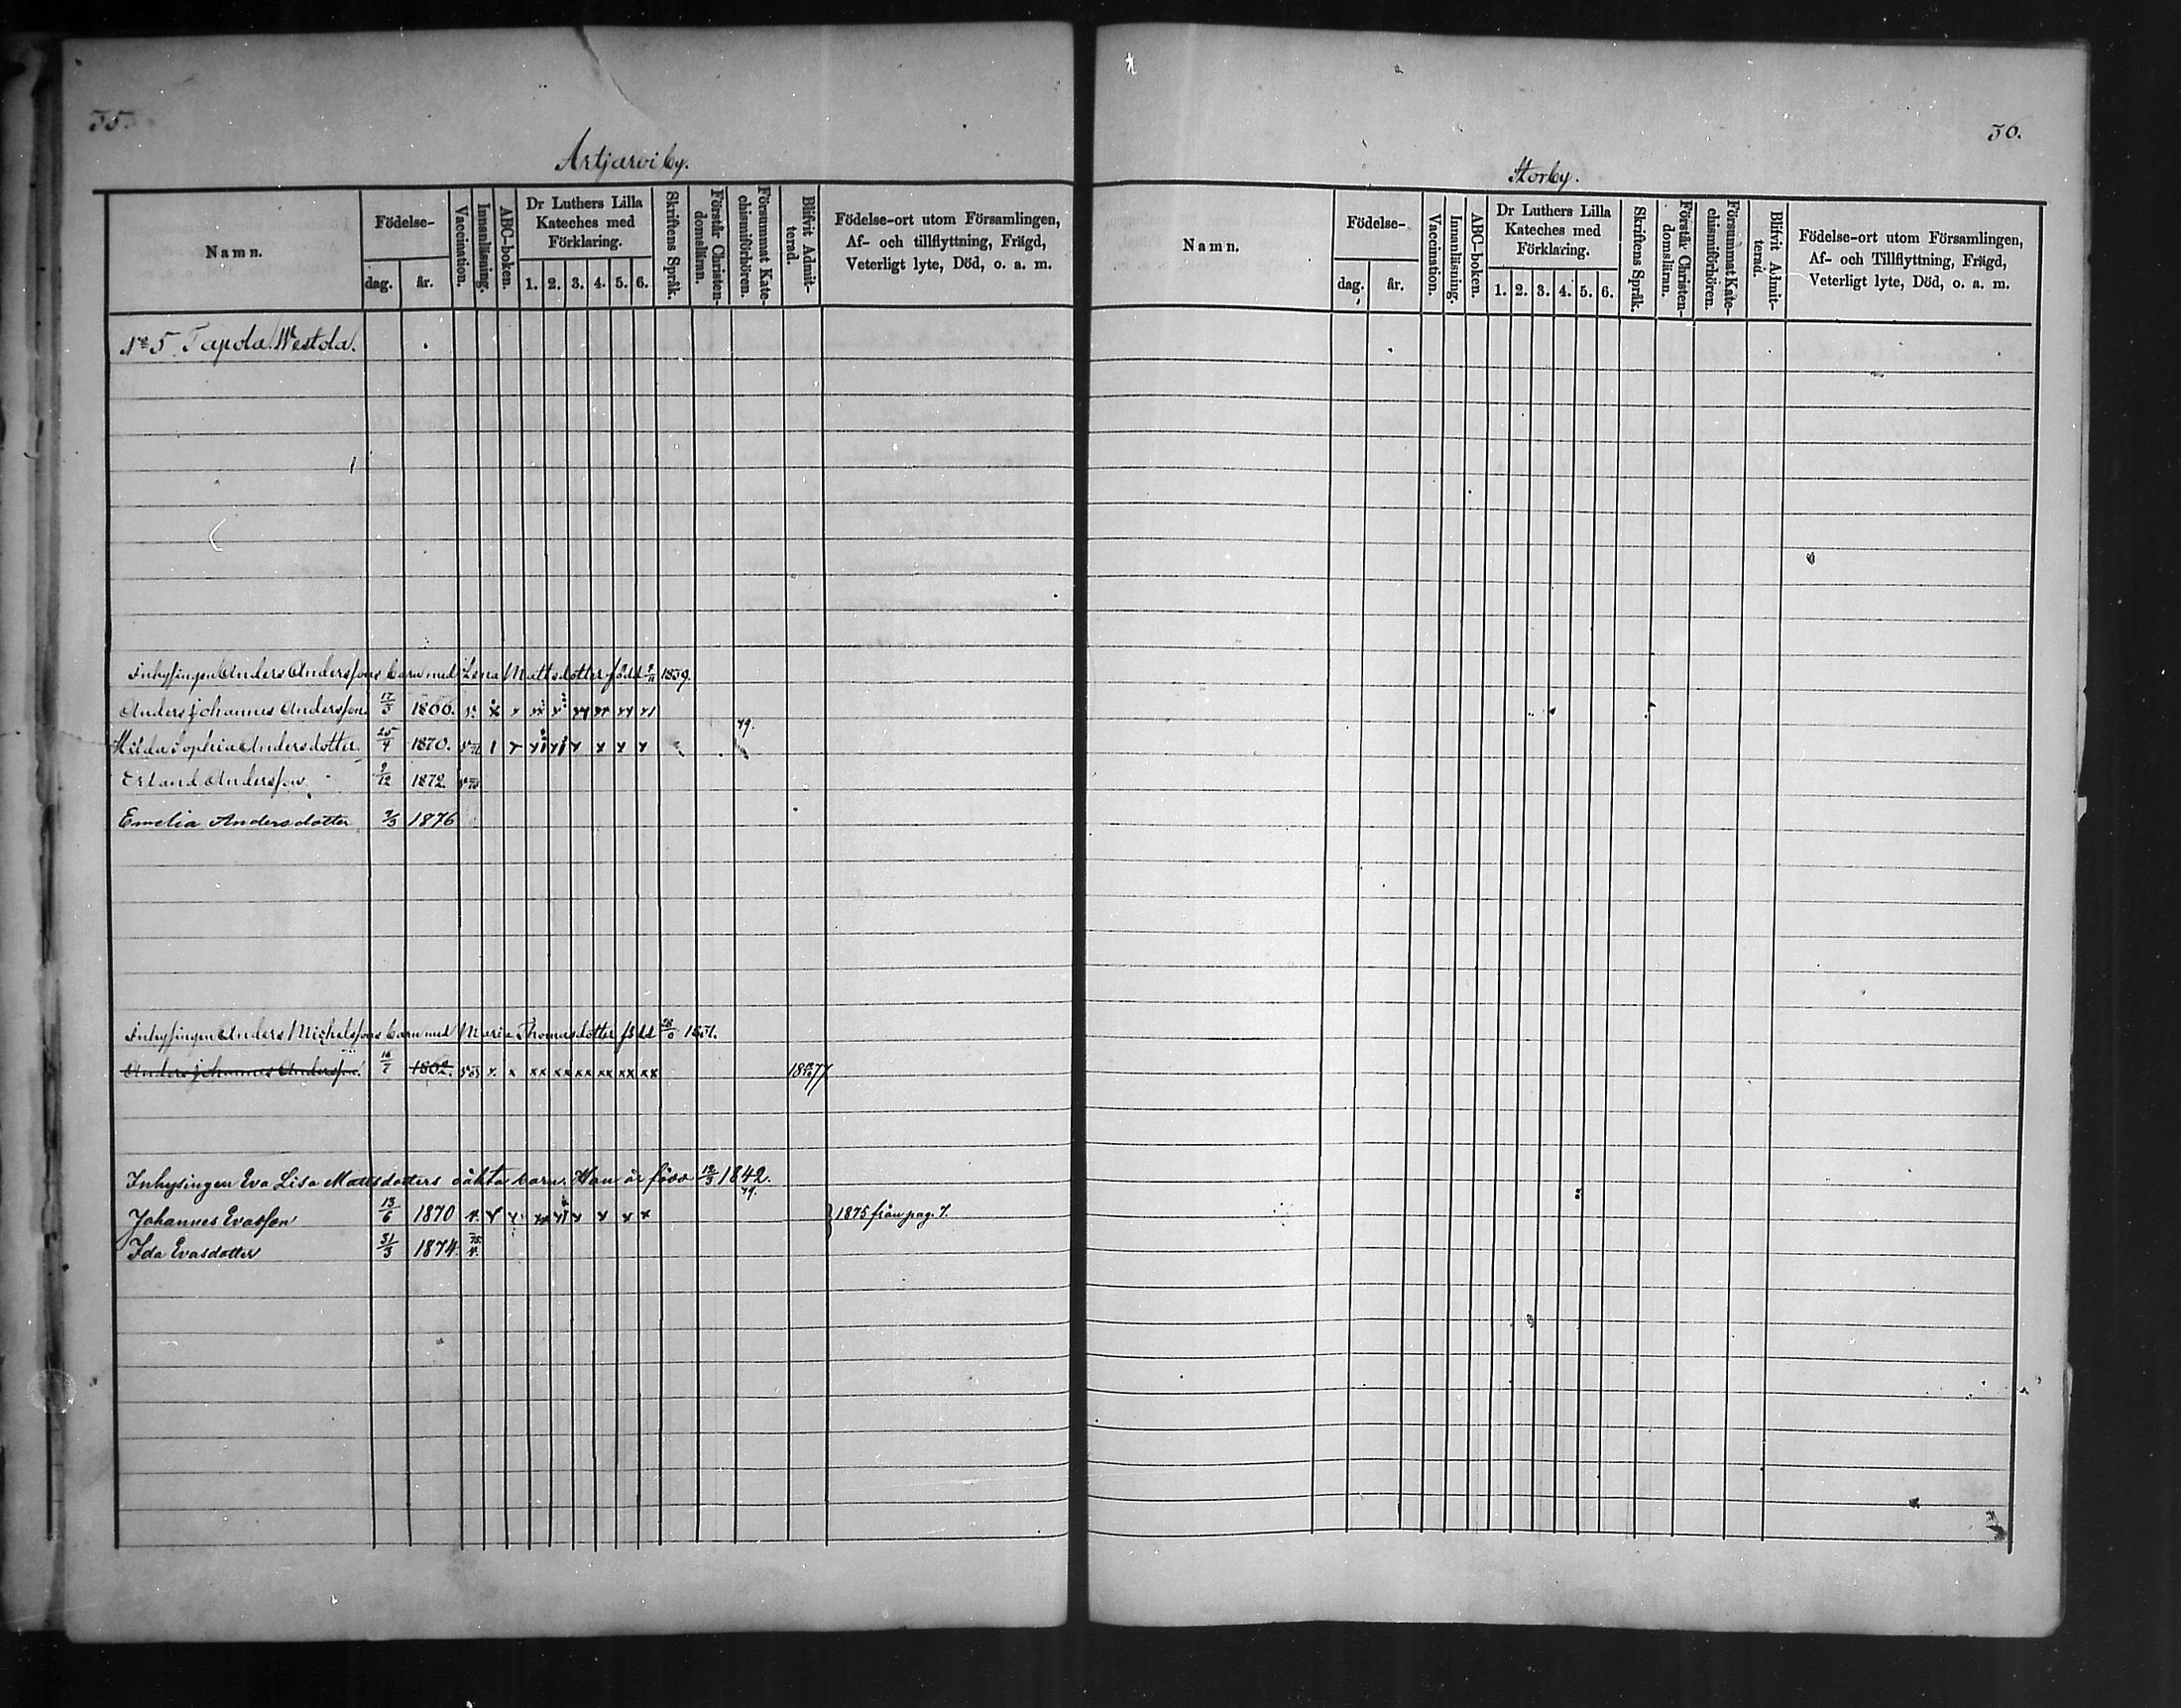 35.
Artjärvi by.
Namn. Födelse- dag. år. Vaccination. Innanläsning. ABC-boken. Dr Luthers Lilla Kateches med Förklaring. 1. 2. 3. 4. 5. 6. Skriftens Språk. Förstår Christen-domsläran. Försummat Kate-chismiförhören. Blifvit Admit-terad. Födelse-ort utom Församlingen, Af- och tillflyttning, Frägd, Veterligt lyte, Död, o. a. m.
No 5 Tapola Westola.
Inhysingen Anders Anderssons barn med Lena Mattsdotter född 1839.
Anders Johannes Andersson. 17/3 1866.
Hilda Sophia Andersdotter. 25/4 1870. 79.
Erland Andersson 9/12 1872
Emelia Andersdotter 9/3 1876
Inhysingen Anders Michelssons barn med Maria Thomasdotter född
Anders Johannes Andersson. 16/7 1862. 1877
Inhysingen Eva Lisa Mattsdotters oäkta barn. Hon är född 12/3 1842.
Johannes Evasson 13/6 1870 79. 1875 från pag. 7.
Ida Evasdotter 31/3 1874 75.
36.
Storby.
Namn. Födelse- dag. år. Vaccination. Innanläsning. ABC-boken. Dr Luthers Lilla Kateches med Förklaring. 1. 2. 3. 4. 5. 6. Skriftens Språk. Förstår Christen-domsläran. Försummat Kate-chismiförhören. Blifvit Admit-terad. Födelse-ort utom Församlingen, Af- och Tillflyttning, Frägd, Veterligt lyte, Död, o. a. m.